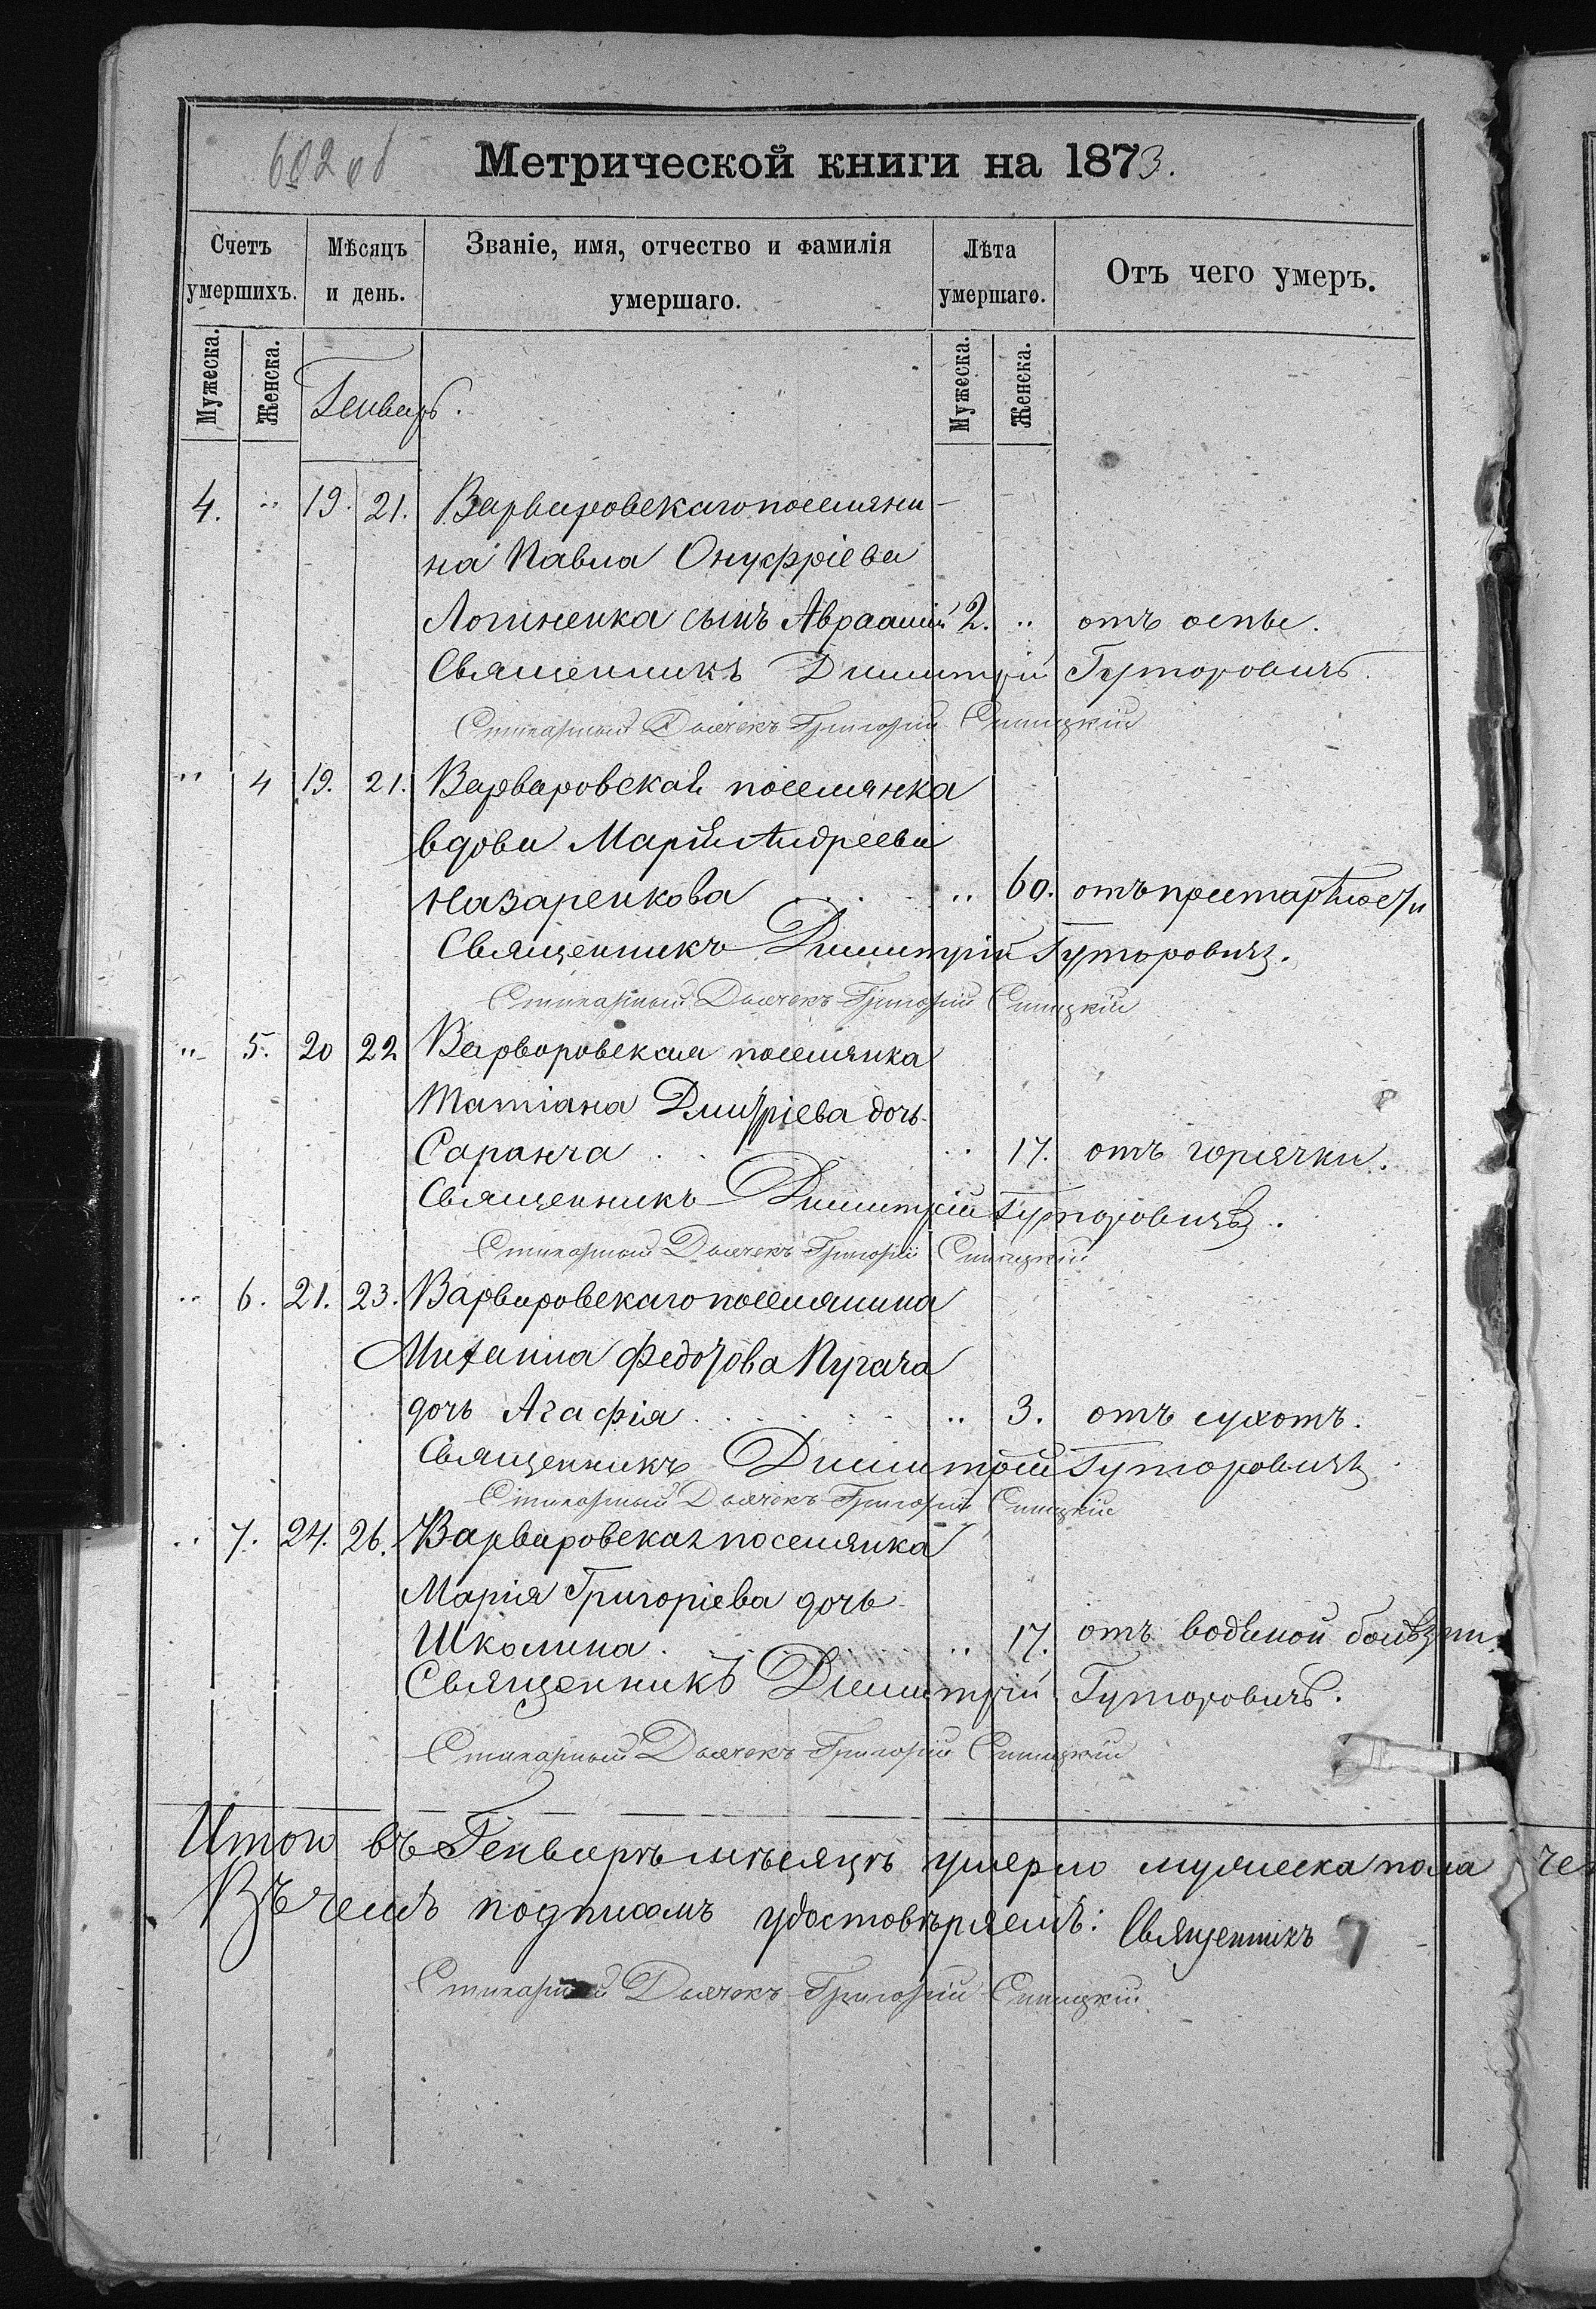 602 об
Метрической книги на 1873.
Счетъ умершихъ. Мѣсяцъ и день. Званіе, имя, отчество и фамилія умершаго. Лѣта умершаго. Отъ чего умеръ.
Мужеска. Женска. Генварь. Мужеска. Женска.
4. " 19. 21. Варваровскаго поселяни-
на Павла Онуфріева
Логиненка сынъ Авраамій 2. " отъ оспы.
Священникъ Димитрій Гуторовичъ.
Стихарный Дьячекъ Григорій
" 4 19. 21. Варваровская поселянка
вдова Марія Андреева
Назаренкова . . . . " 60. отъ престарѣлости
Священникъ Димитрій Гуторовичъ.
Стихарный Дьячекъ Григорій
" 5. 20 22 Варваровская поселянка
Татіана Дмитріева дочь
Саранча . . " 17. отъ горячки.
Священникъ Димитрій Гуторовичъ.
Стихарный Дьячекъ Григорій
" 6. 21. 23. Варваровскаго поселянина
Михаила Федорова Пугача
дочь Агафія . . . . . . " 3. отъ сухотъ.
Священникъ Димитрій Гуторовичъ
Стихарный Дьячекъ Григорій
" 7. 24. 26. Варваровская поселянка
Марія Григоріева дочь
Школина . . . " 17. отъ водяной болѣзни.
Священникъ Димитрій Гуторовичъ.
Стихарный Дьячекъ Григорій
Итого въ Генварѣ мѣсяцѣ умерло мужеска пола че
Въ чемъ подписомъ удостовѣряемъ: Священникъ
Стихарный Дьячекъ Григорій